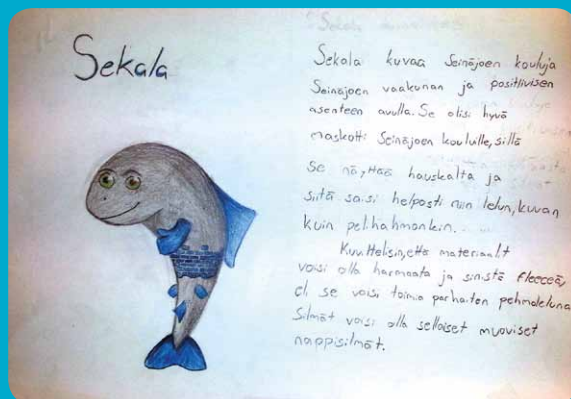 Sekala
Sekala kuvaa Seinäjoen kouluja
Seinäjoen vaakunan ja positiivisen
asenteen avulla. Se olisi hyvä
maskotti Seinäjoen kouluille, sillä
se näyttää hauskalta ja
siitä saisi helposti niin lelun, kuvan
kuin pelihahmonkin.
Kuvittelisin, että materiaalit
voisi olla harmaata ja sinistä fleeceä,
eli se voisi toimia parhaiten pehmoleluna
Silmät voisi olla sellaiset muoviset
nappisilmät.